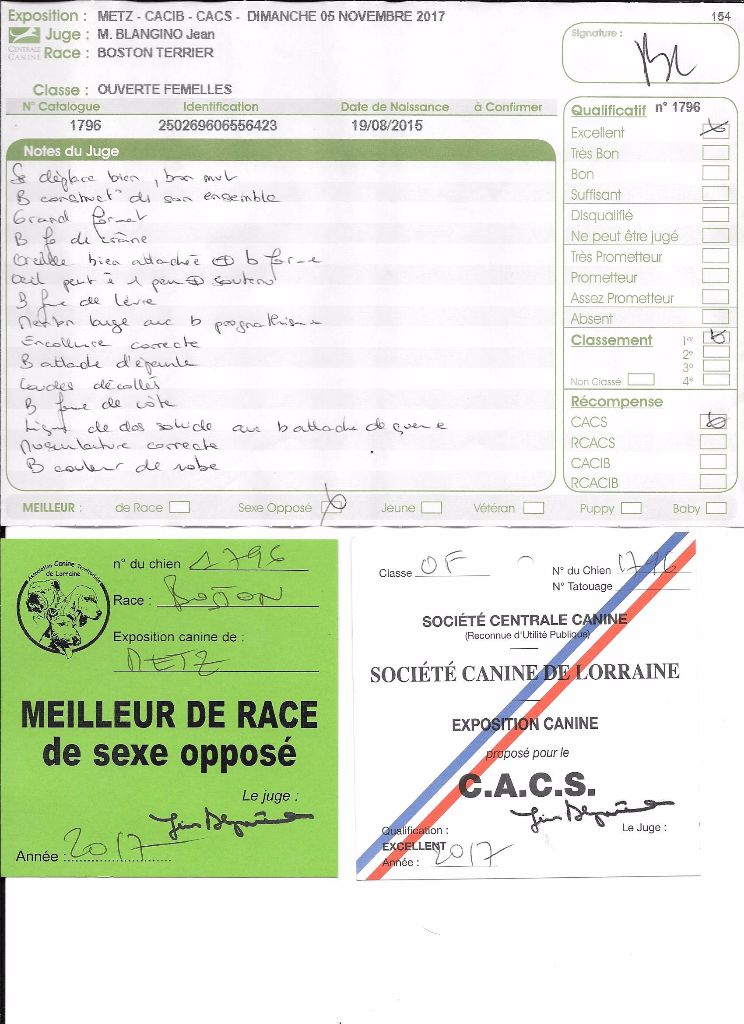 Exposition : METZ - CACIB - CACS - DIMANCHE 05 NOVEMBRE 2017
154
CENTRALE CANINE
Juge : M. BLANGINO Jean
Race : BOSTON TERRIER
Signature :
Classe : OUVERTE FEMELLES
N° Catalogue Identification Date de Naissance à Confirmer
1796 250269606556423 19/08/2015
Notes du Juge
Se déplace bien, bon mvt
B construct° ds son ensemble
Grand format
B fe de crâne
Oreille bien attachée et b forme
Œil peut ê 1 peu + soutenu
B fme de lèvre
Menton large avec b prognathisme
Encolure correcte
B attache d'épaule
Coudes décollés
B fme de côte
Ligne de dos solide avec b attache de queue
Musculature correcte
B couleur de robe
Qualificatif n° 1796
Excellent
Très Bon
Bon
Suffisant
Disqualifié
Ne peut être jugé
Très Prometteur
Prometteur
Assez Prometteur
Absent
Classement 1er
2e
3e
Non Classé 4e
Récompense
CACS
RCACS
CACIB
RCACIB
MEILLEUR : de Race Sexe Opposé Jeune Vétéran Puppy Baby
Association Canine Territoriale de Lorraine
n° du chien 1796
Race : BOSTON
Exposition canine de :
METZ
MEILLEUR DE RACE
de sexe opposé
Le juge :
Année : 2017
Classe OF N° du Chien 1796
N° Tatouage
SOCIÉTÉ CENTRALE CANINE
(Reconnue d'Utilité Publique)
SOCIÉTÉ CANINE DE LORRAINE
EXPOSITION CANINE
proposé pour le
C.A.C.S.
Qualification :
Le Juge :
EXCELLENT
Année : 2017